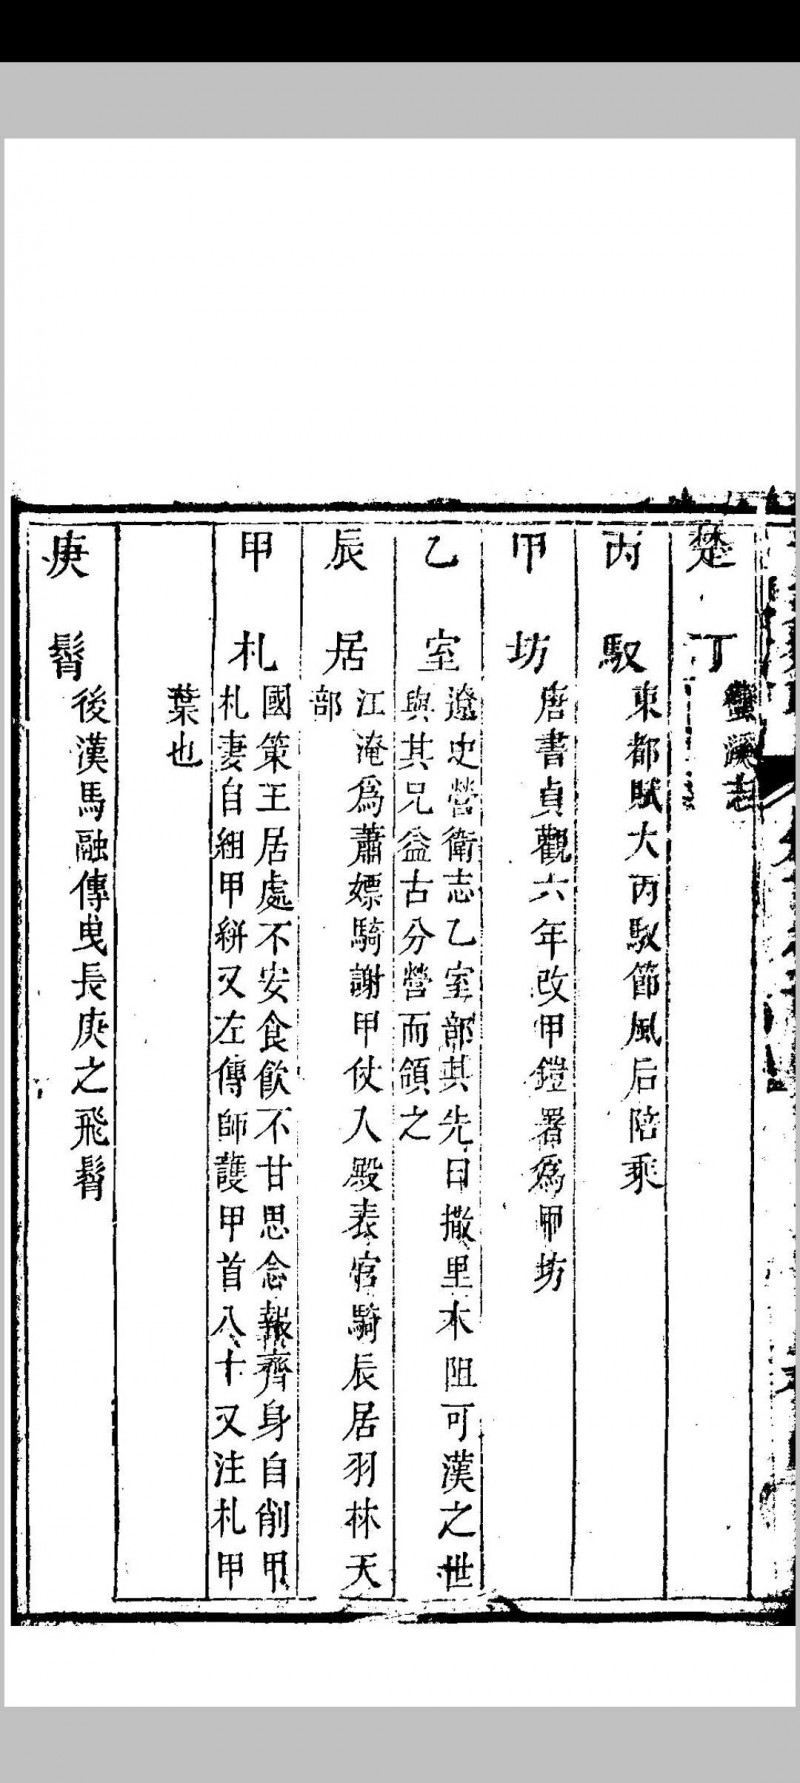 楚丁
蠻溪志
丙馭
東都賦大丙馭節風后陪乘
甲坊
唐書貞觀六年改甲鎧署爲甲坊
乙室
遼史營衛志乙室部其先曰撒里本阻可漢之世
與其兄益古分營而領之
辰居
江淹爲蕭嫖騎謝甲仗入殿表官騎辰居羽林天
部
甲札
國策王居處不安食飲不甘思念報齊身自削甲
札妻自組甲絣又左傳師護甲首八十又注札甲
葉也
庚髾
後漢馬融傳曳長庚之飛髾